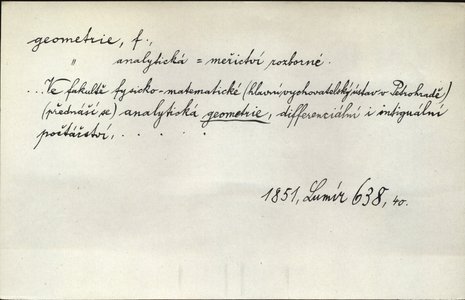 geometrie, f.,
" analytická = měřictví rozborné.
...Ve fakultě fysicko-matematické (hlavní vychovatelský ústav v Petrohradě)
(přednáší se) analytická geometrie, differenciální i intiguální
počtářství, . . . . .
1851, Lumír 638, 40.